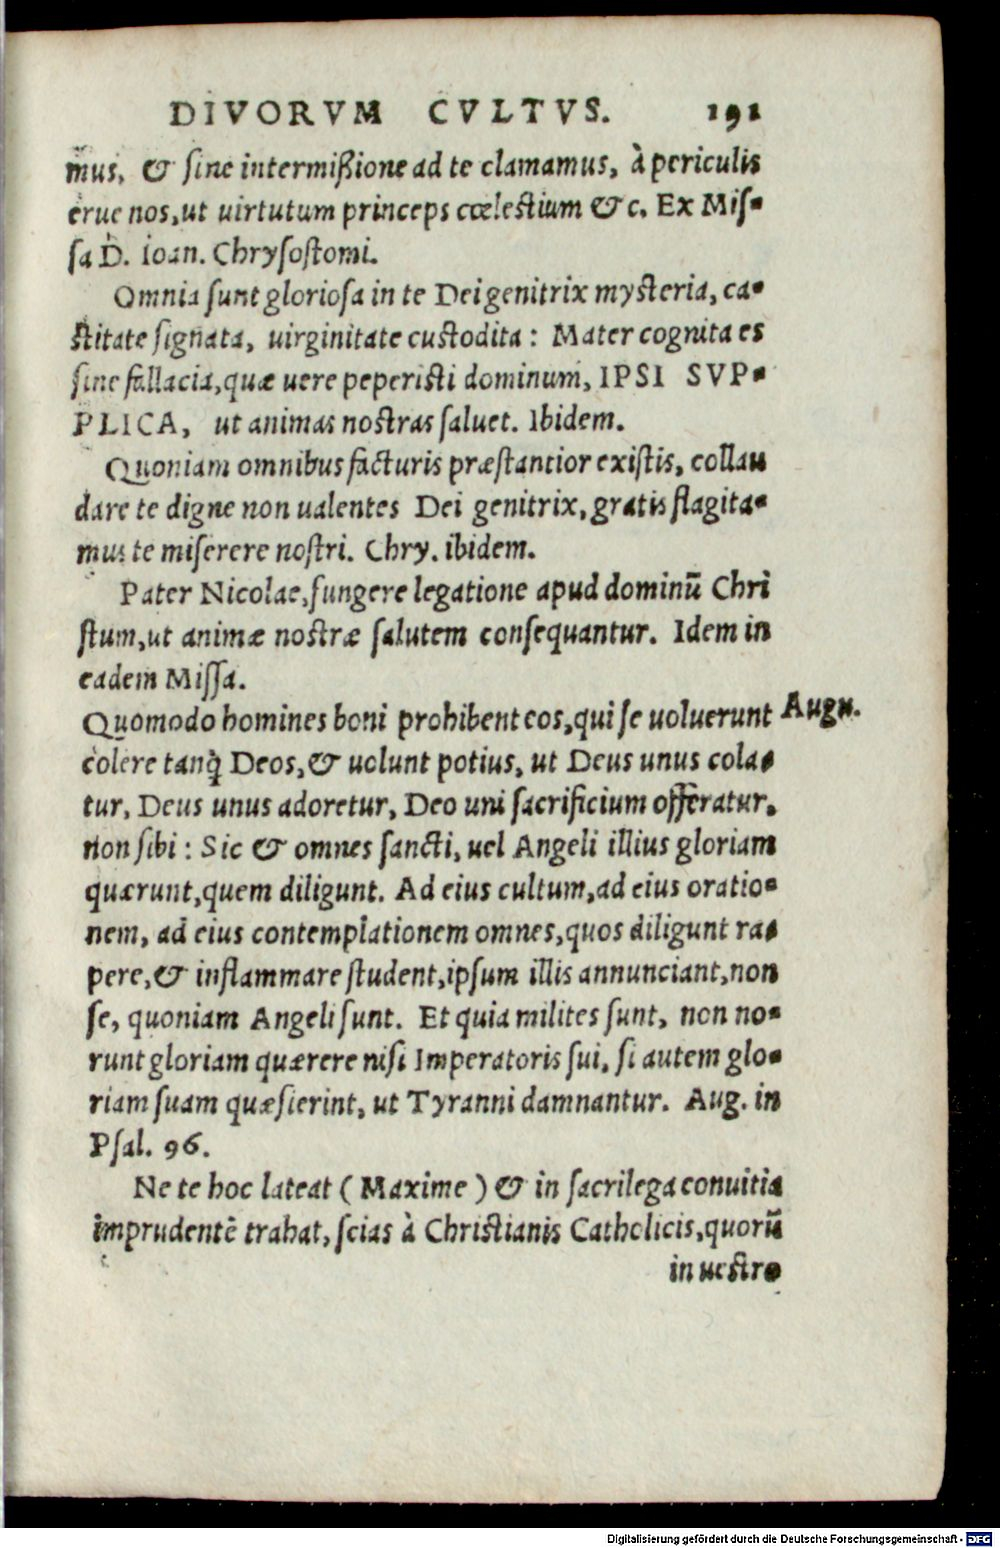 DIVORVM CVLTVS. 191
mus, & sine intermißione ad te clamamus, à periculis
erue nos, ut uirtutum princeps cœlestium &c. Ex Mis-
sa D. Ioan. Chrysostomi.
Omnia sunt gloriosa in te Dei genitrix mysteria, ca-
stitate signata, uirginitate custodita : Mater cognita es
sine fallacia, quæ uere peperisti dominum, IPSI SVP-
PLICA, ut animas nostras saluet. Ibidem.
Quoniam omnibus facturis præstantior existis, collau
dare te digne non ualentes Dei genitrix, gratis flagita-
mus te miserere nostri. Chry. ibidem.
Pater Nicolae, fungere legatione apud dominū Chri
stum, ut animæ nostræ salutem consequantur. Idem in
eadem Missa.
Quomodo homines boni prohibent eos, qui se uoluerunt Augu.
colere tanq̃ Deos, & uolunt potius, ut Deus unus cola-
tur, Deus unus adoretur, Deo uni sacrificium offeratur,
non sibi : Sic & omnes sancti, uel Angeli illius gloriam
quærunt, quem diligunt. Ad eius cultum, ad eius oratio-
nem, ad eius contemplationem omnes, quos diligunt ra-
pere, & inflammare student, ipsum illis annunciant, non
se, quoniam Angeli sunt. Et quia milites sunt, non no-
runt gloriam quærere nisi Imperatoris sui, si autem glo-
riam suam quæsierint, ut Tyranni damnantur. Aug. in
Psal. 96.
Ne te hoc lateat ( Maxime ) & in sacrilega conuitia
imprudentē trahat, scias à Christianis Catholicis, quorū
in uestro
Digitalisierung gefördert durch die Deutsche Forschungsgemeinschaft - DFG